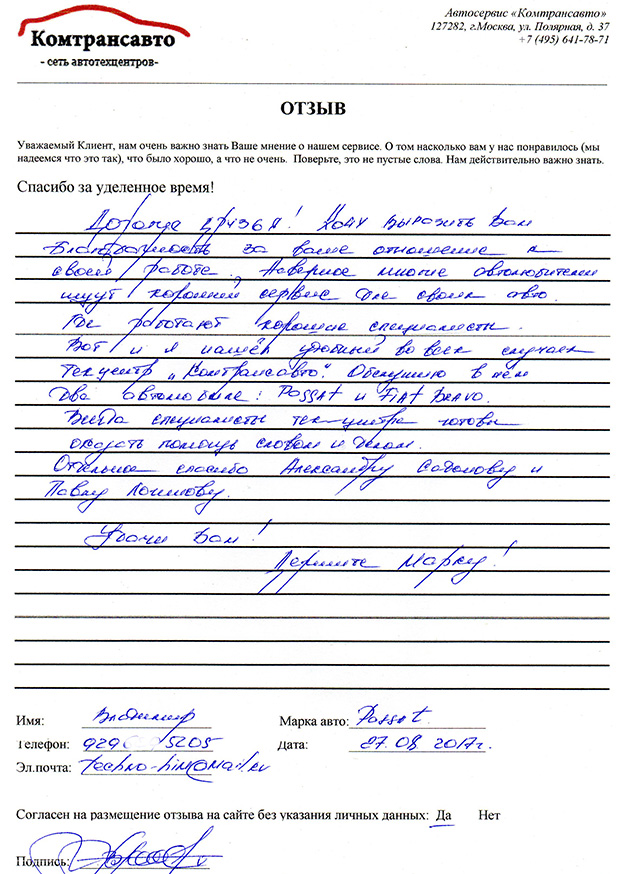 Комтрансавто
- сеть автотехцентров-
Автосервис «Комтрансавто»
127282, г.Москва, ул. Полярная, д. 37
+7 (495) 641-78-71
ОТЗЫВ
Уважаемый Клиент, нам очень важно знать Ваше мнение о нашем сервисе. О том насколько вам у нас понравилось (мы
надеемся что это так), что было хорошо, а что не очень. Поверьте, это не пустые слова. Нам действительно важно знать.
Спасибо за уделенное время!
Дорогие друзья! Хочу выразить Вам
благодарность за ваше отношение к
своей работе. Наверное многие автолюбители
ищут хороший сервис для своих авто.
Где работают хорошие специалисты.
Вот и я нашёл удобный во всех случаях
техцентр „Комтрансавто“ Обслужию в нем
Два автомобиля: Passat и Fiat Bravo.
Всегда специалисты тех-центра готовы
оказать помощь словом и делом.
Отдельное спасибо Александру и
Павлу Логинову.
Удачи Вам!
Держите Марку!
Имя: Владимир
Марка авто: Passat.
Телефон: 929 5205
Дата: 27.08 2017г.
Эл.почта: techno-him@mail.ru
Согласен на размещение отзыва на сайте без указания личных данных: Да Нет
Подпись: